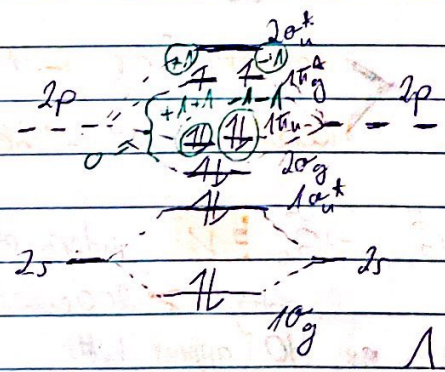 2σᵤ*
+1 -1
1πg*
2p +1+1 -1-1 2p
1πᵤ
0
2σg
1σᵤ*
2s 2s
1σg
Λ